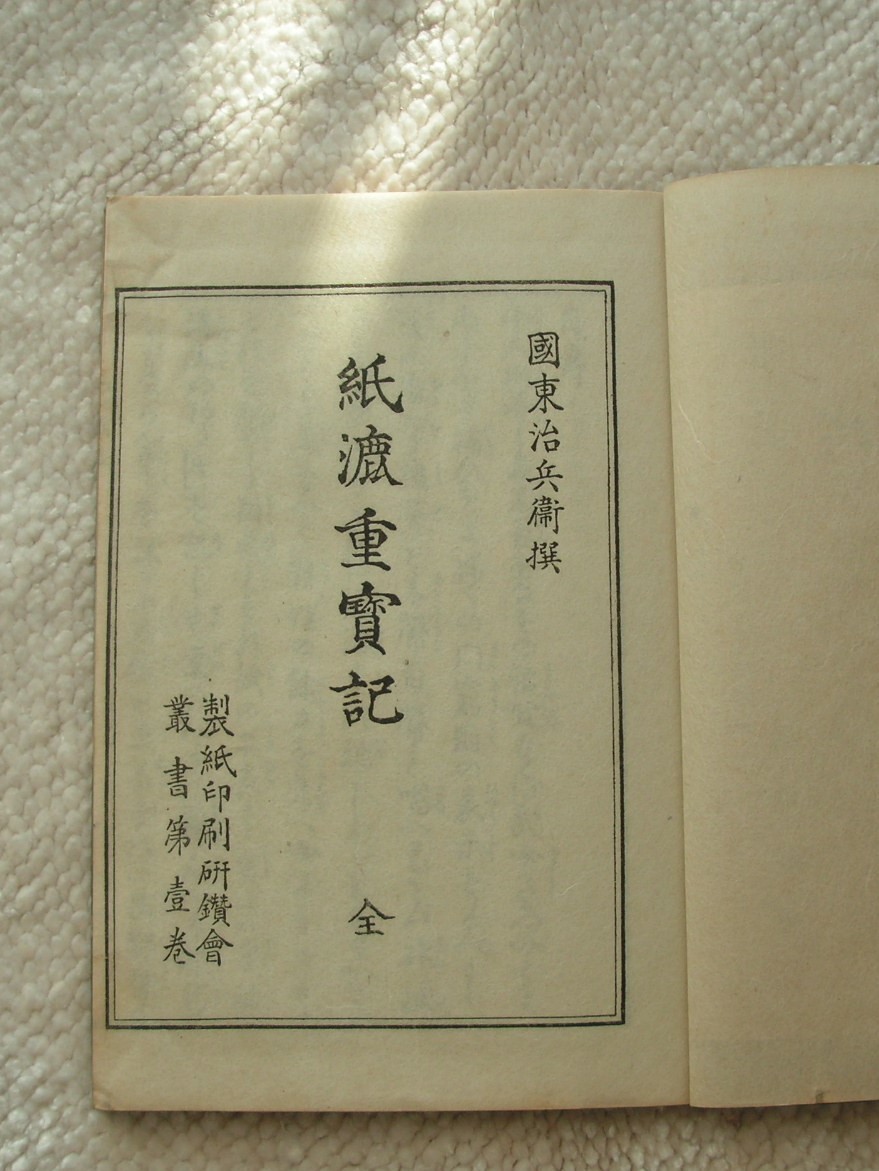 國東治兵衞撰
紙漉重寶記　全
製紙印刷硏鑽會
叢書第壹卷